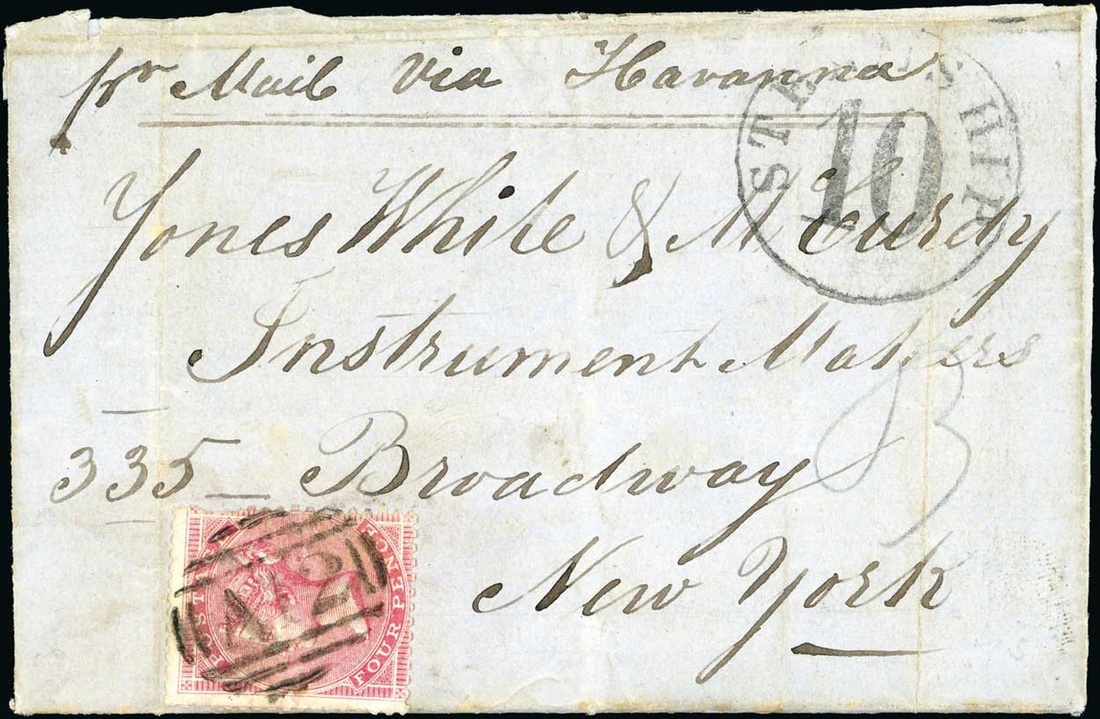 pr Mail via Havanna
STEAMSHIP
10
Jones White & McCurdy
Instrument Makers
335 Broadway
New York
3
POSTAGE
FOUR PENCE